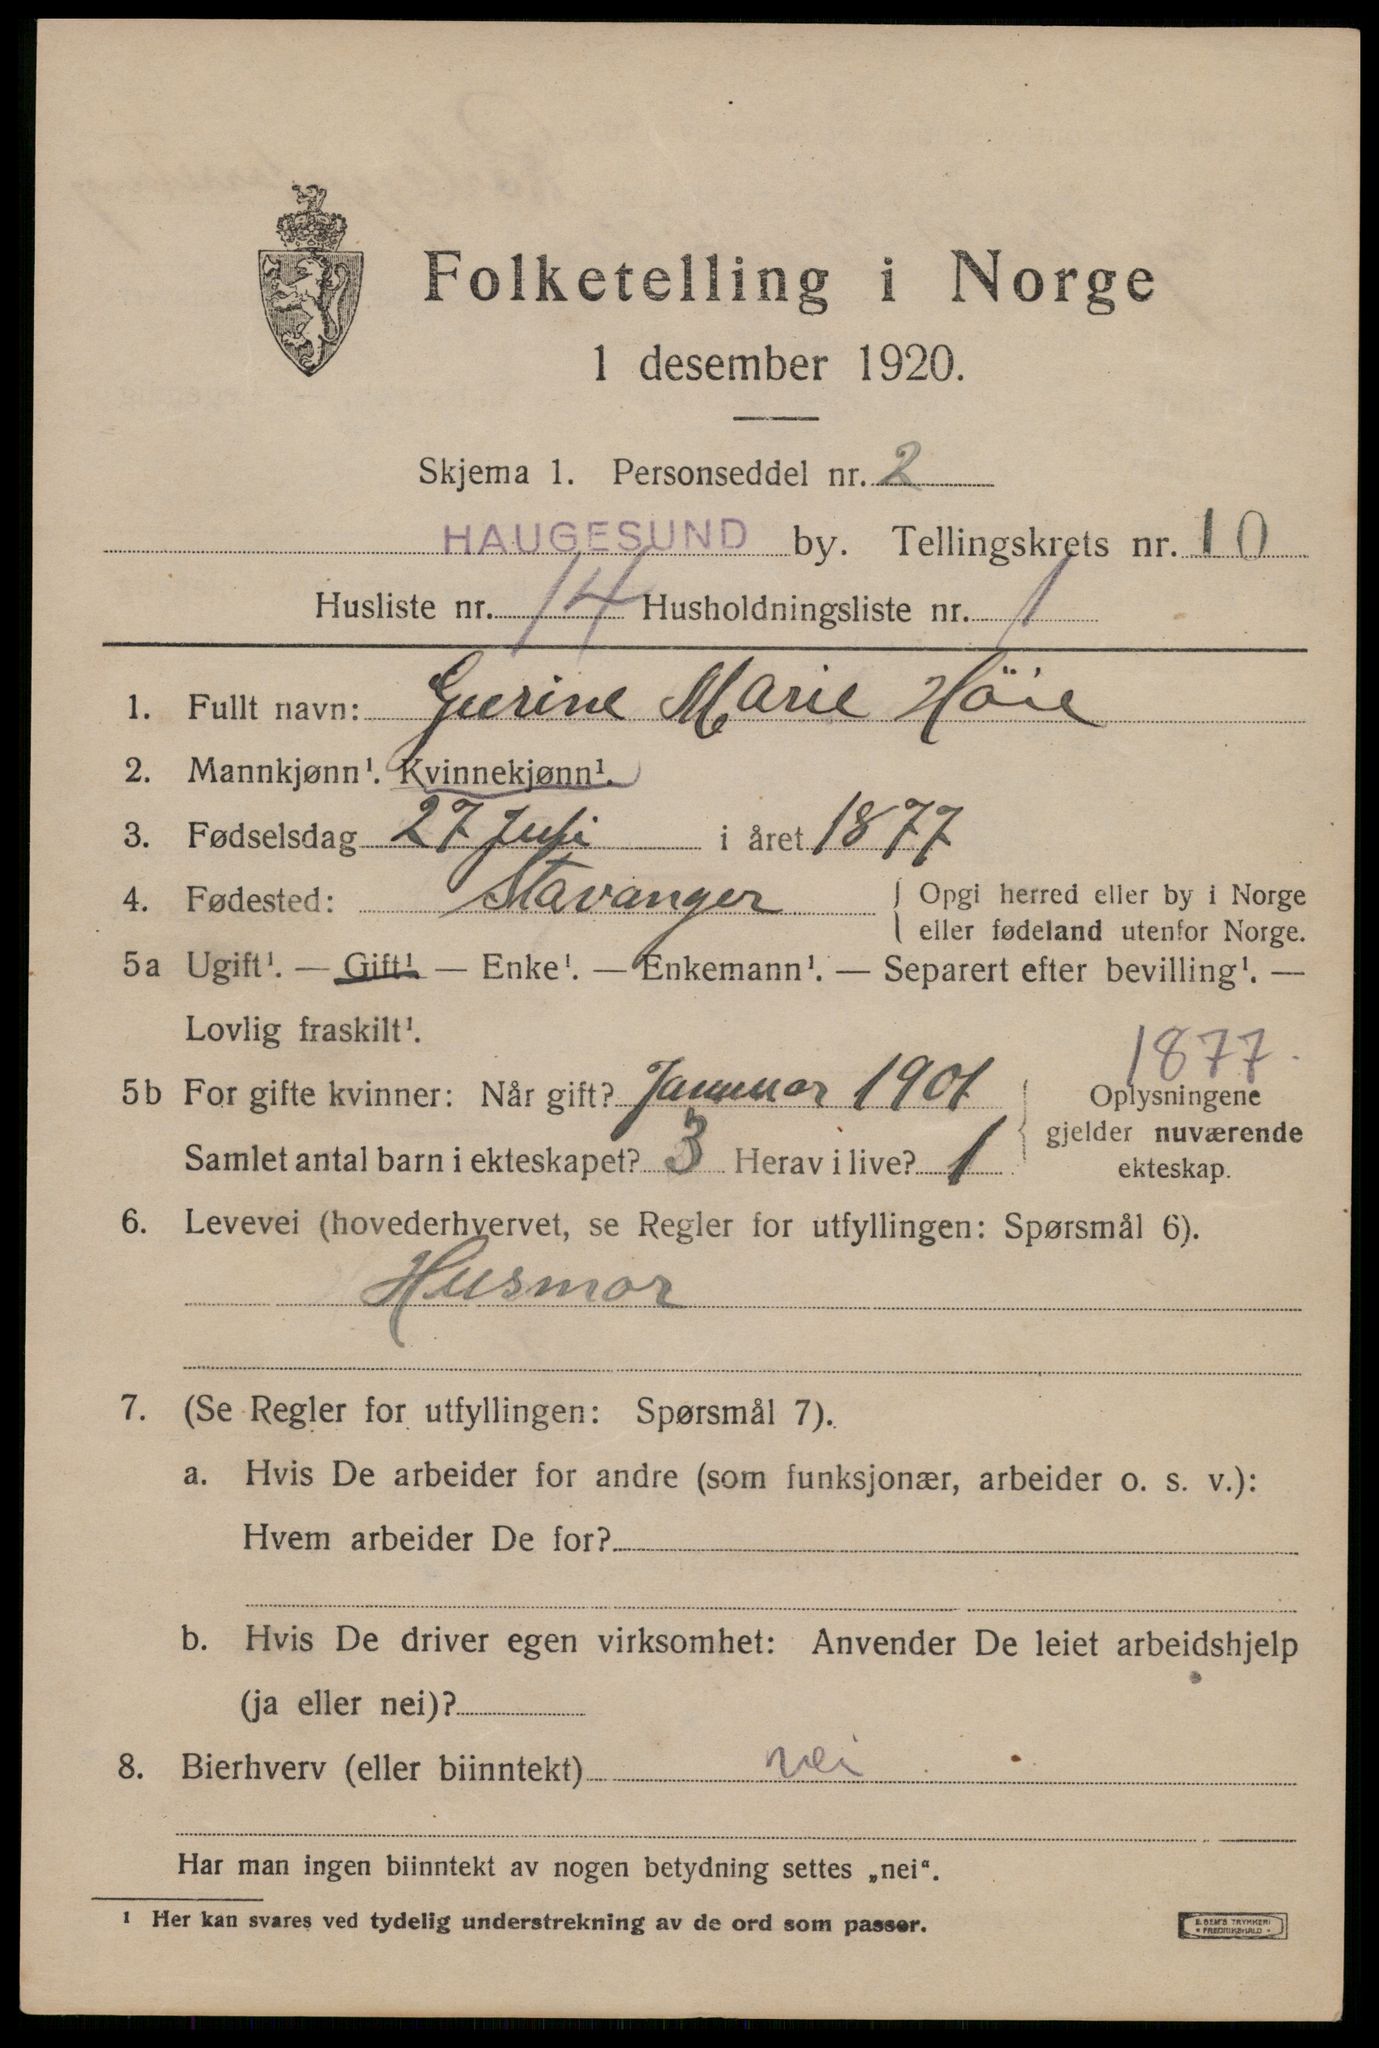 Folketelling i Norge
1 desember 1920.
Skjema 1. Personseddel nr. 2
HAUGESUND by. Tellingskrets nr. 10
Husliste nr. 14 Husholdningsliste nr. 1
1. Fullt navn: Gurine Marie Höie
2. Mannkjønn¹. Kvinnekjønn¹.
3. Fødselsdag 27 Juli i året 1877
4. Fødested: Stavanger { Opgi herred eller by i Norge
eller fødeland utenfor Norge.
5a Ugift¹. — Gift¹ — Enke¹. — Enkemann¹. — Separert efter bevilling¹. —
Lovlig fraskilt¹.
1877.
5b For gifte kvinner: Når gift? Januar 1901 { Oplysningene
gjelder nuværende
Samlet antal barn i ekteskapet? 3 Herav i live? 1 ekteskap.
6. Levevei (hovederhvervet, se Regler for utfyllingen: Spørsmål 6).
Husmor
7. (Se Regler for utfyllingen: Spørsmål 7).
a. Hvis De arbeider for andre (som funksjonær, arbeider o. s. v.):
Hvem arbeider De for?
b. Hvis De driver egen virksomhet: Anvender De leiet arbeidshjelp
(ja eller nei)?
8. Bierhverv (eller biinntekt) nei
Har man ingen biinntekt av nogen betydning settes „nei“.
¹ Her kan svares ved tydelig understrekning av de ord som passer.
E. SEM'S TRYKKERI
• FREDRIKSHALD •